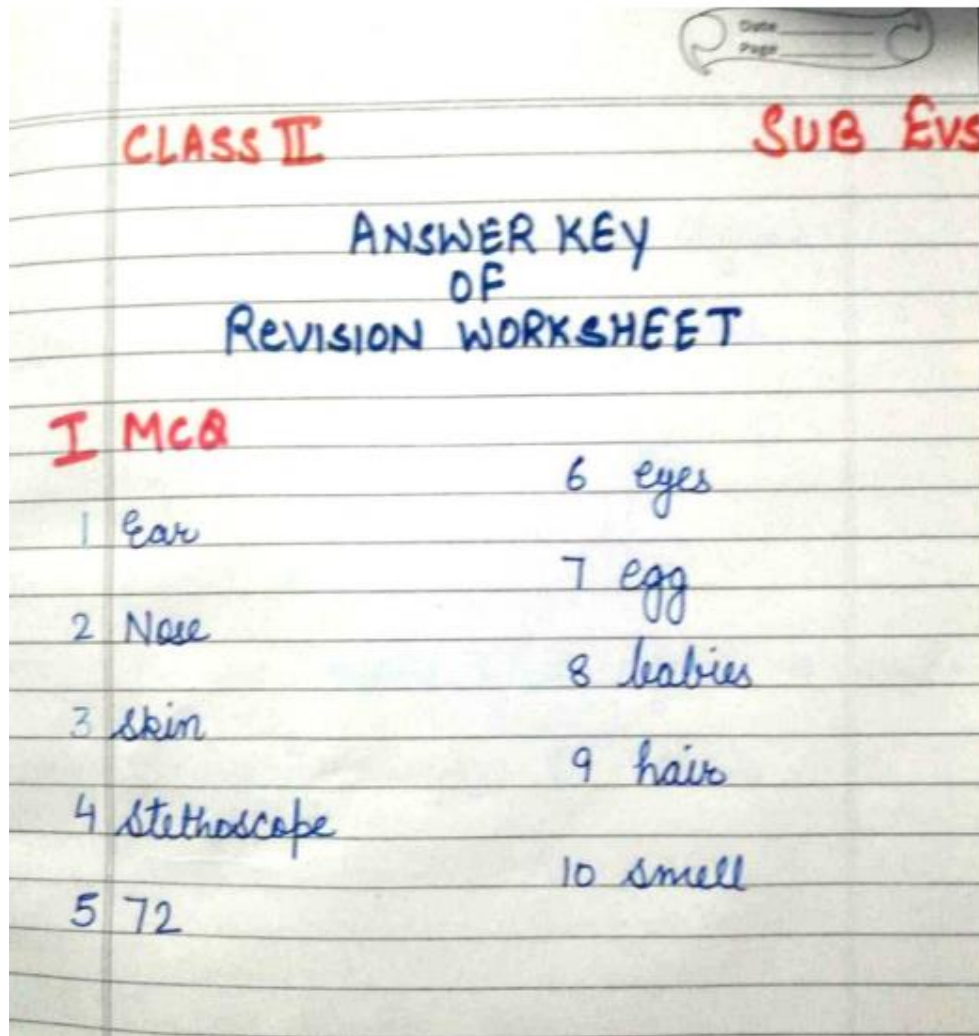 Date
Page
CLASS II SUB EVS
ANSWER KEY
OF
REVISION WORKSHEET
I MCQ
1 Ear
2 Nose
3 skin
4 stethoscope
5 72
6 eyes
7 egg
8 babies
9 hair
10 smell